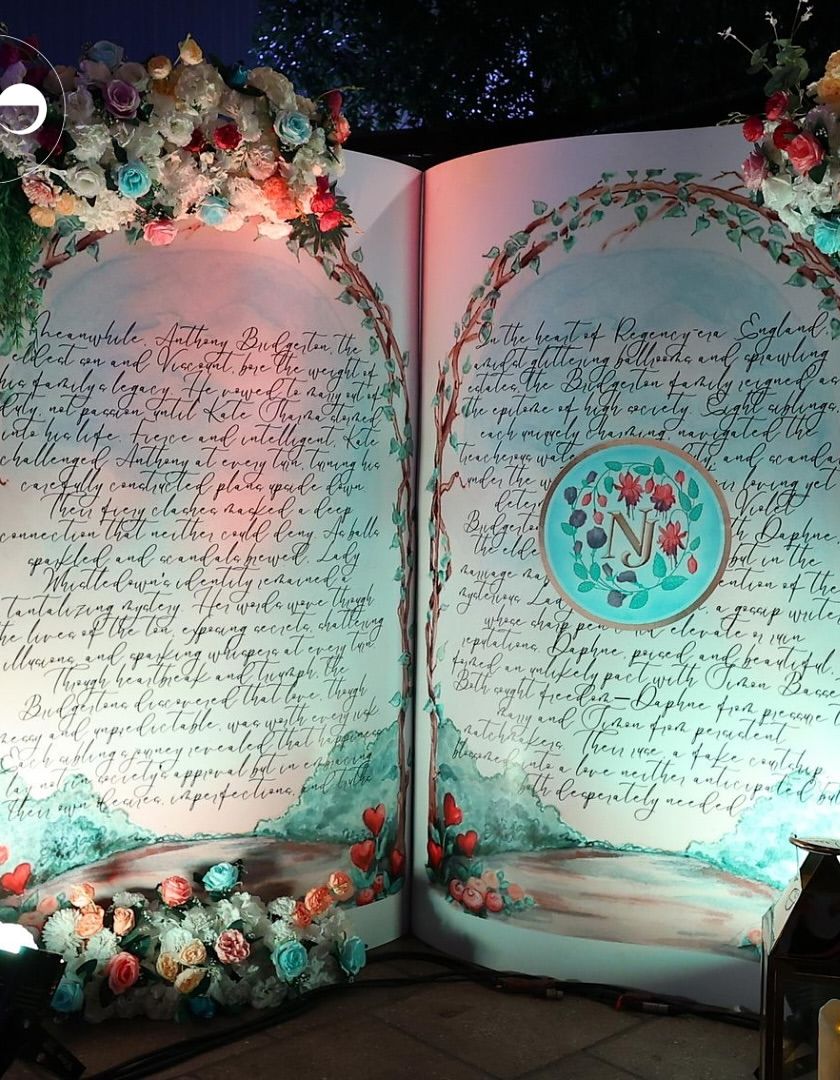 Meanwhile, Anthony Bridgerton, the
eldest son and Viscount, bore the weight of
his family's legacy. He vowed to marry out of
duty, not passion until Kate Sharma stormed
into his life. Fierce and intelligent, Kate
challenged Anthony at every turn, turning his
carefully constructed plans upside down.
Their fiery clashes masked a deep
connection that neither could deny. As balls
sparkled and scandals brewed, Lady
Whistledown's identity remained a
tantalizing mystery. Her words wove through
the lives of the ton, exposing secrets, shattering
illusions, and sparking whispers at every turn.
Through heartbreak and triumph, the
Bridgertons discovered that love, though
messy and unpredictable, was worth every risk.
Each sibling's journey revealed that happiness
lay not in society's approval but in embracing
their own desires, imperfections, and truths
In the heart of Regency-era England,
amidst glittering ballrooms and sprawling
estates, the Bridgerton family reigned as
the epitome of high society. Eight siblings,
each uniquely charming, navigated the
treacherous and
under the loving yet
Violet
Bridgerton Daphne,
the but in the
marriage of the
mysterious Lady a gossip writer
whose sharp pen elevate or ruin
reputations. Daphne, poised and beautiful,
formed an unlikely pact with Simon
Both sought freedom—Daphne from pressure
marry and Simon from persistent
matchmakers. Their ruse, a fake courtship,
blossomed into a love neither anticipated but
both desperately needed
NJ